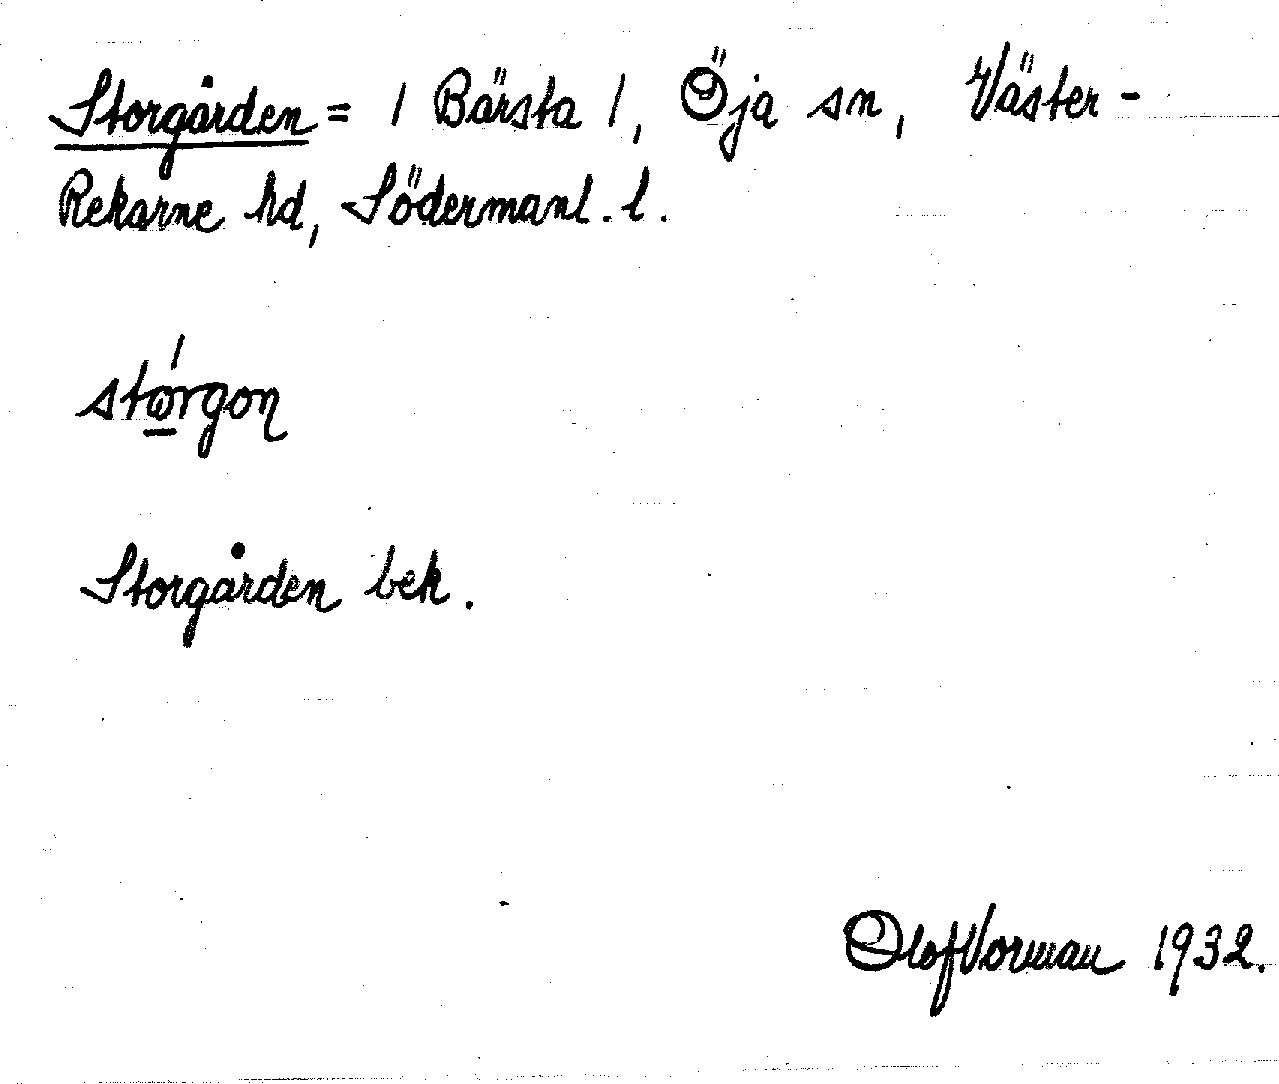 Storgården = 1 Bärsta 1, Öja sn, Väster-
Rekarne hd, Södermanl. l.
stórgon
Storgården bek.
Olof Vorman 1932.